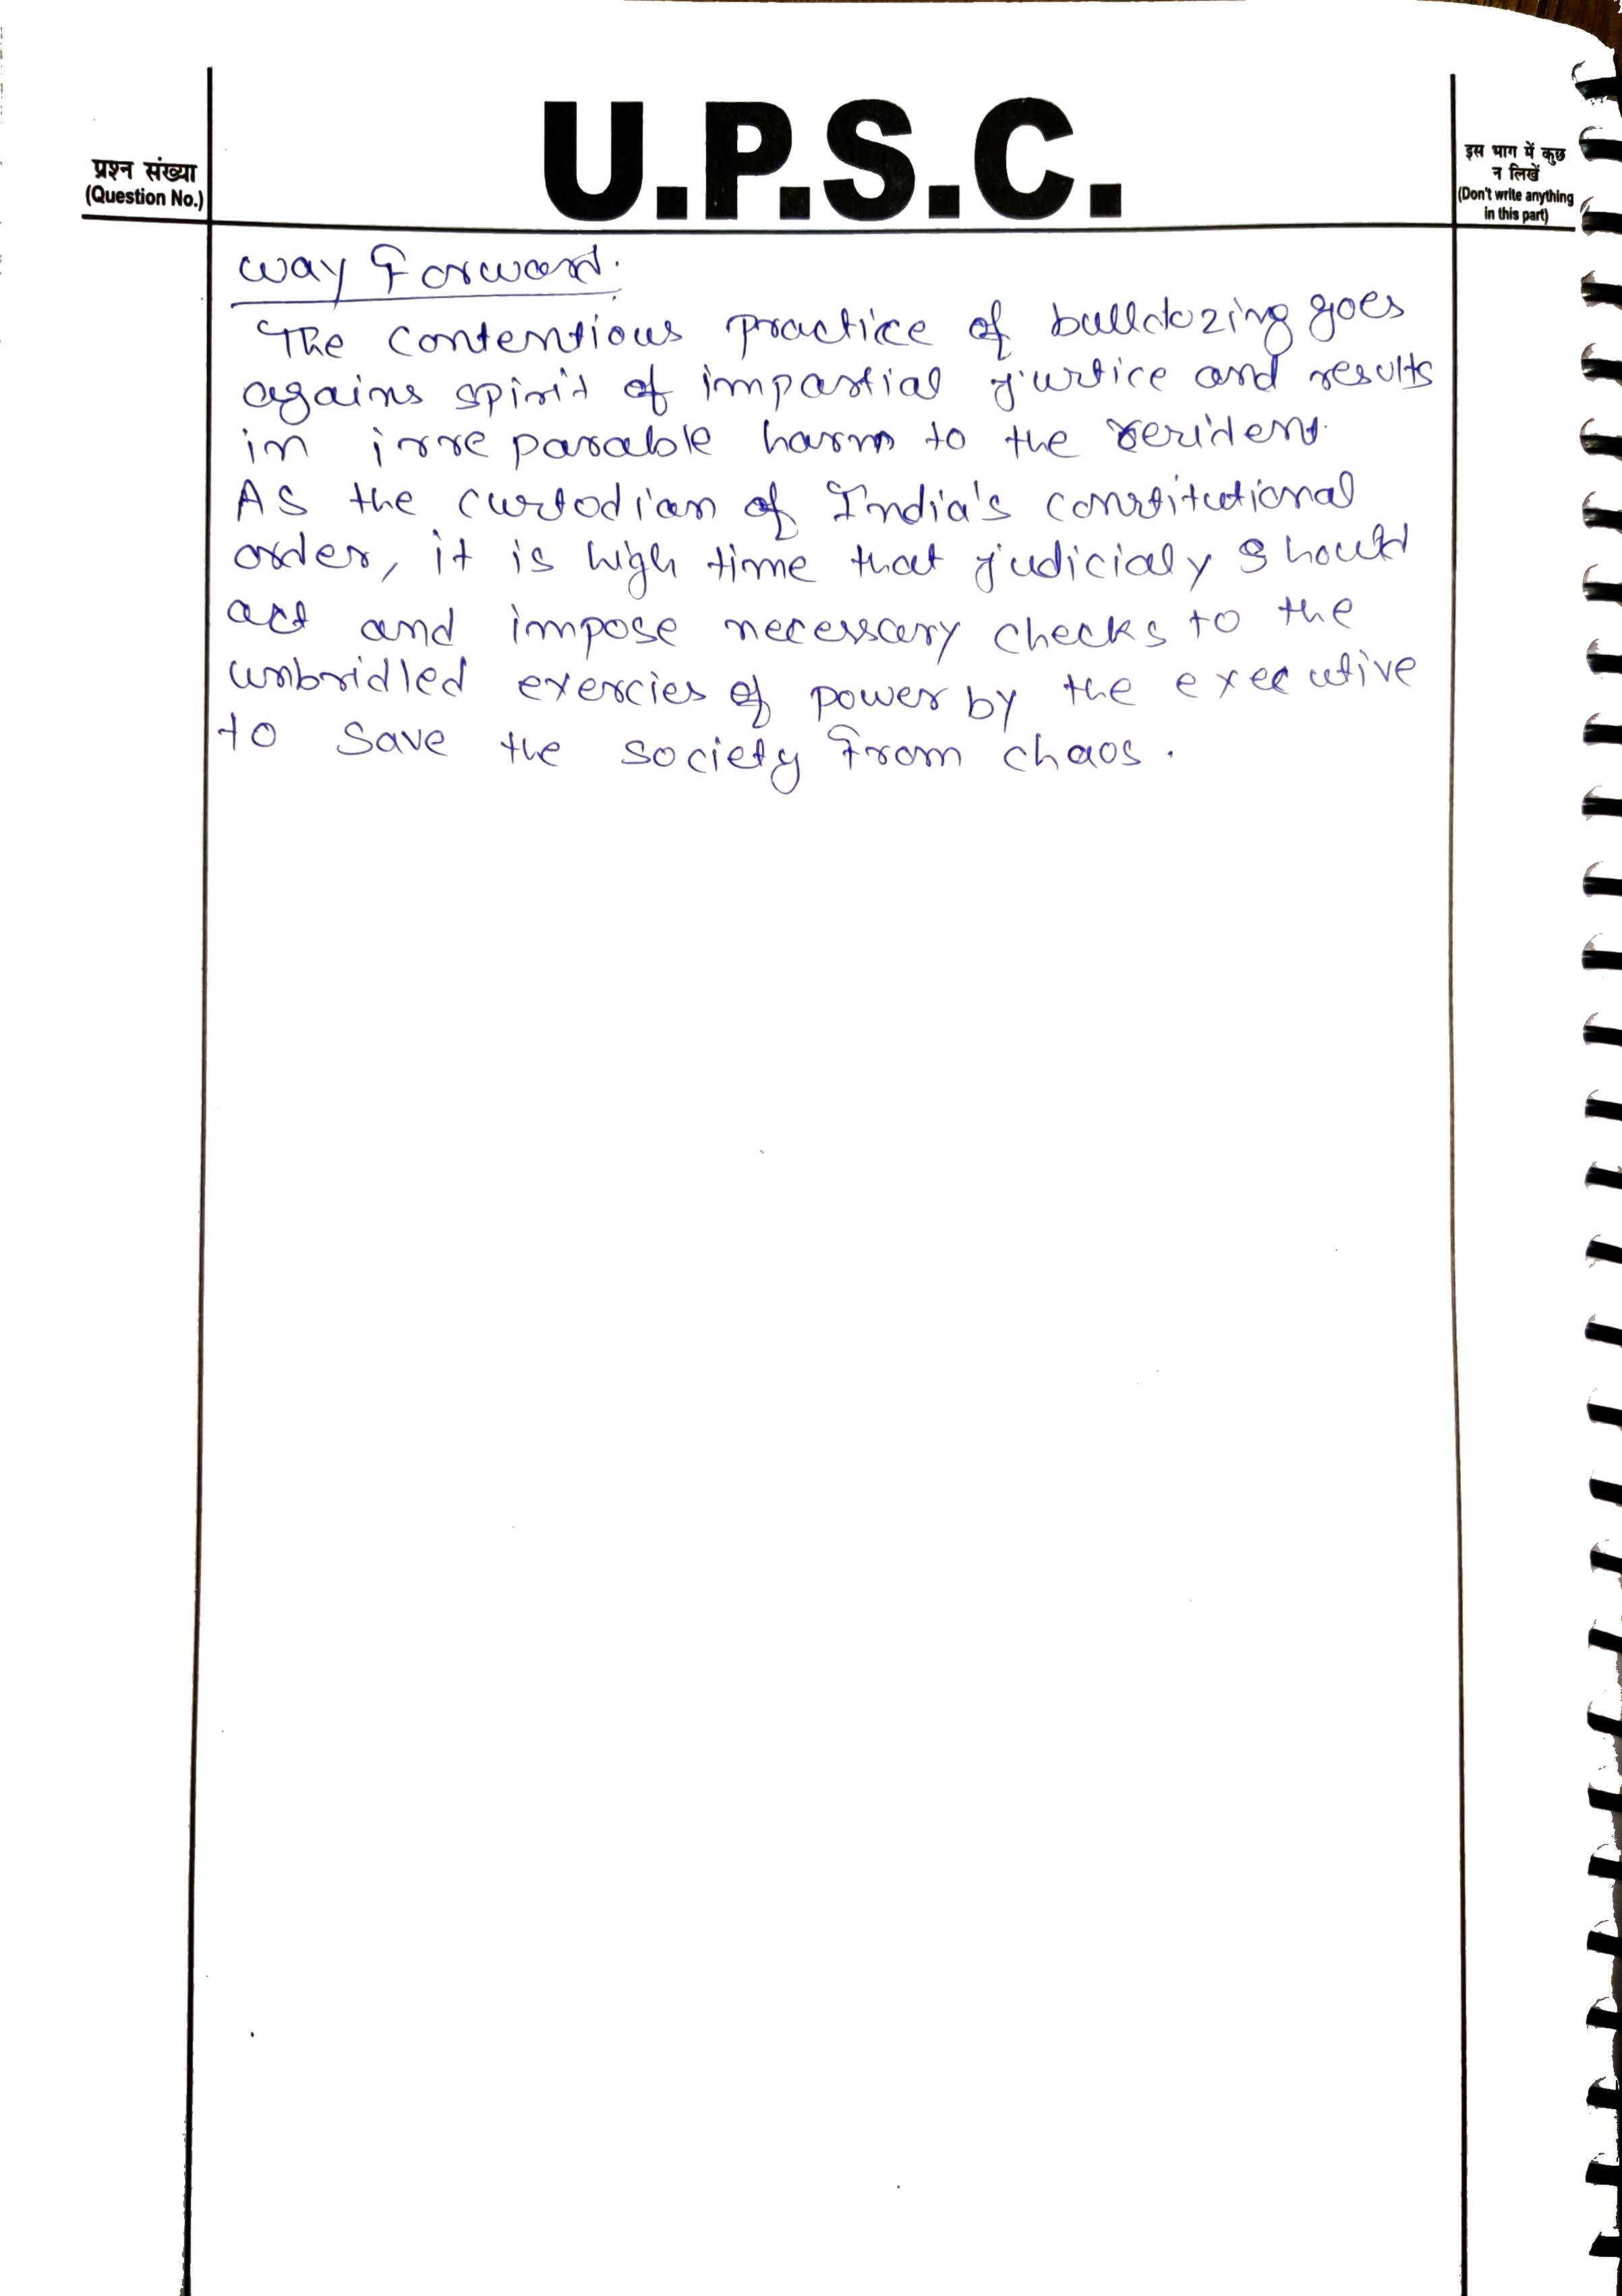 U.P.S.C.
प्रश्न संख्या
(Question No.)
इस भाग में कुछ
न लिखें
(Don't write anything
in this part)
Way Forward.
The contentious practice of bulldozing goes
agains spirit of impartial justice and results
in irreparable harm to the resident.
As the custodian of India's constitutional
order, it is high time that judicialy should
act and impose necessary checks to the
unbridled exercies of power by the executive
to save the society from chaos.